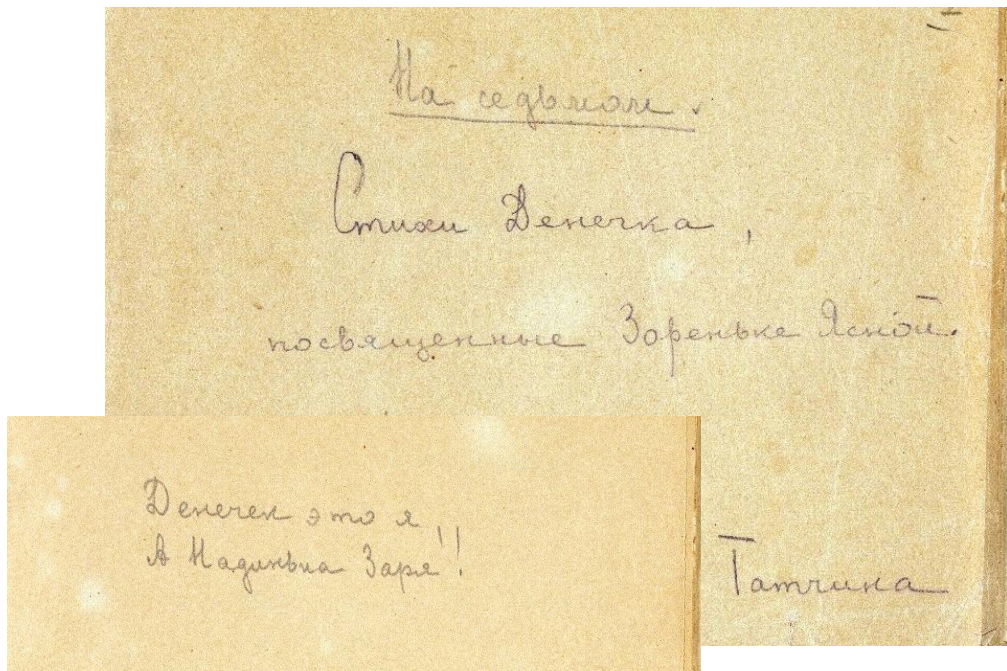 На седьмом.
Стихи Денечка,
посвященные Зореньке Ясной.
Гатчина
Денечек это я
А Надинька Заря!!